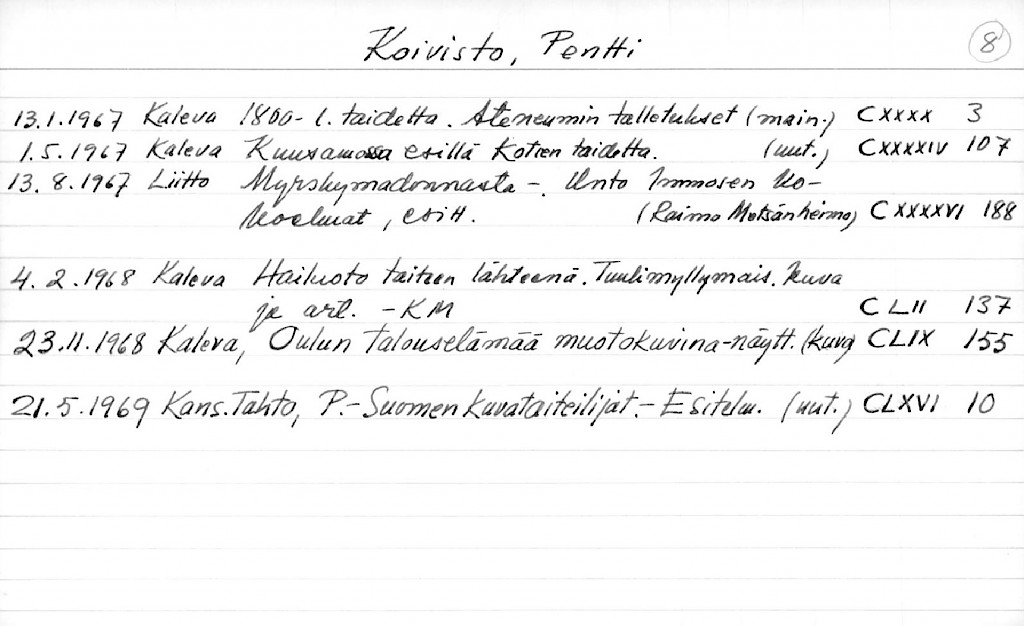 Koivisto, Pentti 8
13.1.1967 Kaleva 1800-l. taidetta. Ateneumin talletukset (main.) CXXXX 3
1.5.1967 Kaleva Kuusamossa esillä Kotien taidetta. (uut.) CXXXXIV 107
13.8.1967 Liitto Myrskymadonnasta -. Unto Immosen ko-
koelmat, esitt. (Raimo Metsänheimo) CXXXXVI 188
4.2.1968 Kaleva Hailuoto taiteen lähteenä. Tuulimyllymais. kuva
ja art. - KM CLII 137
23.11.1968 Kaleva, Oulun talouselämää muotokuvina-näytt. (kuva) CLIX 155
21.5.1969 Kans.Tahto, P.-Suomen kuvataiteilijat.- Esitelm. (uut.) CLXVI 10